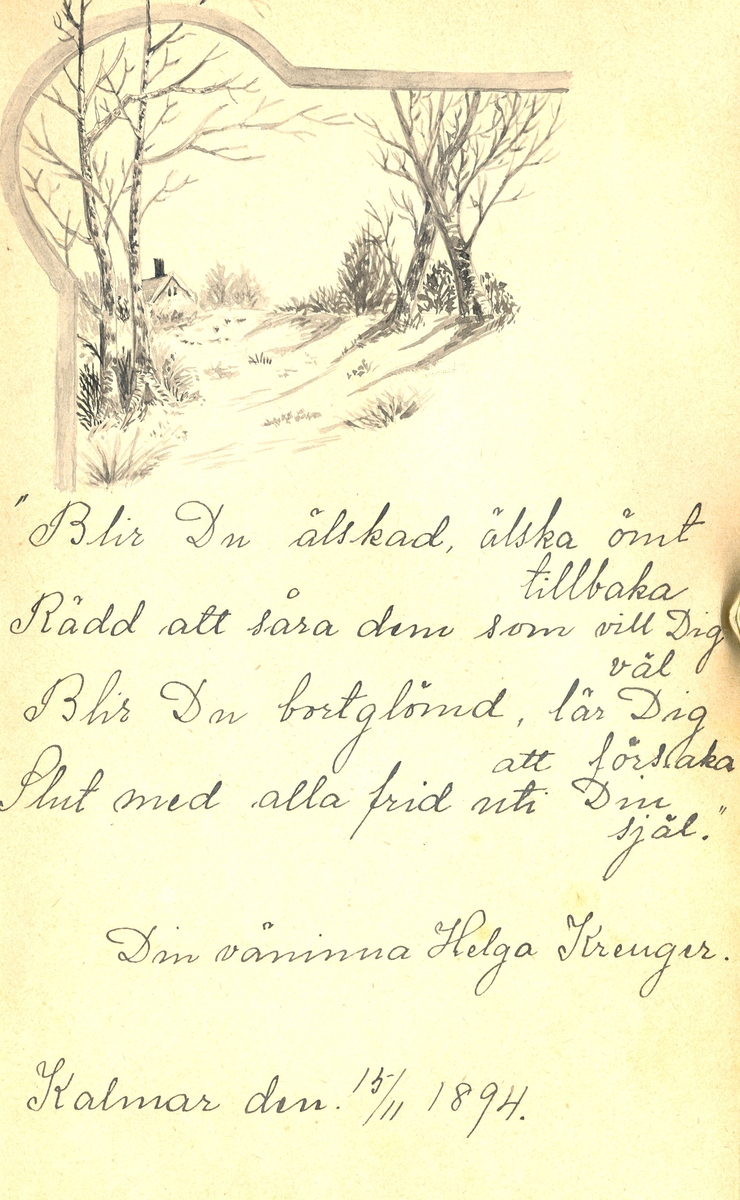 "Blir Du älskad, älska ömt
tillbaka
Rädd att såra dem som vill Dig
väl
Blir Du bortglömd, lär Dig
att försaka
Slut med alla frid uti Din
själ."
Din väninna Helga Kreuger.
Kalmar den. 15/11 1894.